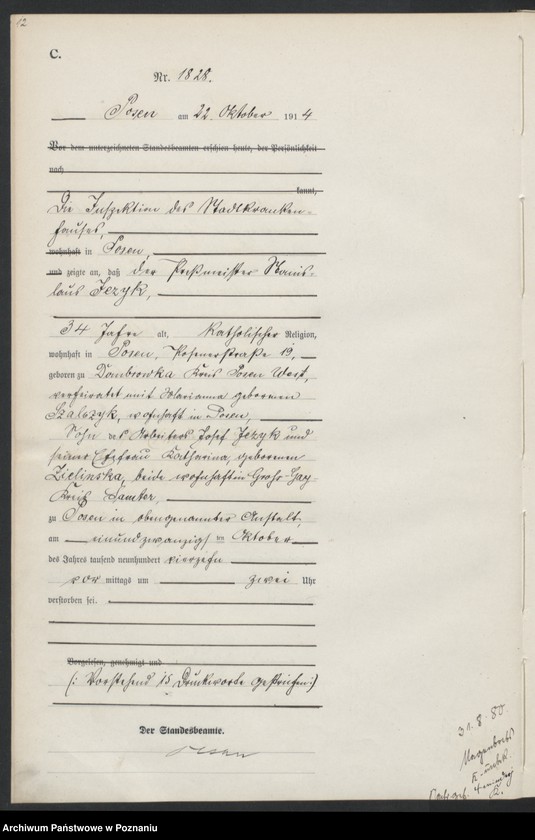 12
C.
Nr. 1828.
Posen am 22. Oktober 1914
Vor dem unterzeichneten Standesbeamten erschien heute, der Persönlichkeit
nach
kannt,
Die Inspektion des Stadtkranken-
hauses,
wohnhaft in Posen,
und zeigte an, daß der Stanis-
laus Jezyk,
34 Jahre alt, katholischer Religion,
wohnhaft in Posen, Posenerstraße 19,
geboren zu Dombrowka Kreis Posen West,
verheiratet mit Marianna geborenen
wohnhaft in Posen,
Sohn des Arbeiters Josef Jezyk und
seiner Ehefrau Katharina, geborenen
Zielinska, beide wohnhaft in Groß Gay
Kreis Samter,
zu Posen in obengenannter Anstalt
am einundzwanzigsten Oktober
des Jahres tausend neunhundert vierzehn
vor mittags um zwei Uhr
verstorben sei.
Vorgelesen, genehmigt und
(: Vorstehend 15 Druckworte gestrichen :)
Der Standesbeamte.
31.8.80
Archiwum Państwowe w Poznaniu